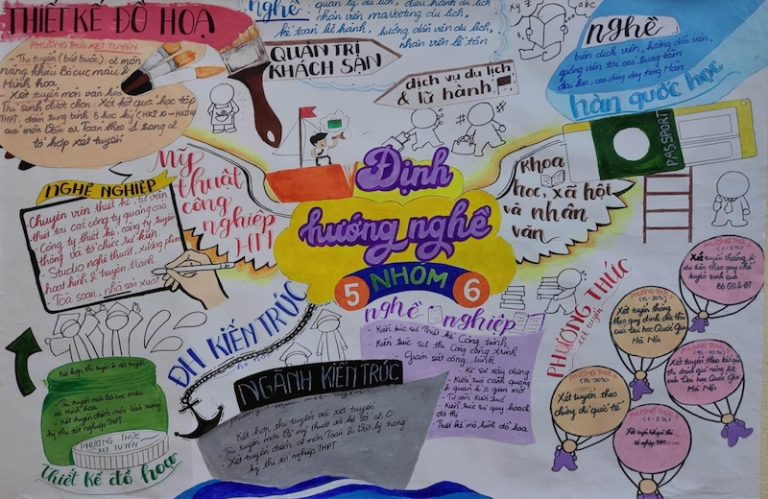 THIẾT KẾ ĐỒ HOẠ
PHƯƠNG THỨC XÉT TUYỂN
- Thi tuyển (bắt buộc) 2 môn
năng khiếu Bố cục màu &
Hình hoạ.
- Xét tuyển môn văn hóa
Thí sinh được chọn: Xét kết quả học tập
THPT, điểm trung bình 5 học kỳ
của môn Văn or Toán theo 1 trong 2
tổ hợp xét tuyển
nghề
quản lý du lịch, điều hành du lịch
nhân viên marketing du lịch,
kế toán lữ hành, hướng dẫn viên du lịch,
nhân viên lễ tân
QUẢN TRỊ
KHÁCH SẠN
dịch vụ du lịch
& lữ hành
nghề
biên dịch viên, hướng dẫn viên,
giảng viên tại các trung tâm
đại học, cao đẳng dạy tiếng Hàn
hàn quốc học
PASSPORT
NGHỀ NGHIỆP
Chuyên viên thiết kế, tư vấn
thiết kế tại các công ty quảng cáo
Công ty thiết kế, công ty truyền
thông và tổ chức sự kiện
- Studio nghệ thuật, xưởng phim
hoạt hình & truyện tranh
Toà soạn, nhà sản xuất
Mỹ
thuật
công
nghiệp
HN
Định
hướng nghề
5 NHÓM 6
khoa
học, xã hội
và nhân
văn
ĐH KIẾN TRÚC
HÀ NỘI
nghề nghiệp
Kiến trúc sư Thiết kế Công trình
Kiến trúc sư thi công công trình
- Giám sát công trình
- Kĩ sư xây dựng
- Kiến trúc cảnh quan
- Tư vấn kiến trúc
- Kiến trúc sư quy hoạch
đô thị
- Thiết kế mô hình đồ hoạ
PHƯƠNG THỨC
xét tuyển
PHƯƠNG THỨC 1
Xét tuyển thẳng &
ưu tiên theo quy chế
tuyển sinh của
Bộ GD & ĐT
Xét tuyển thẳng
theo quy định đặc thù
của Đại học Quốc Gia
Hà Nội
Xét tuyển theo kết quả
thi đánh giá năng lực
của Đại học Quốc Gia
Hà Nội
Xét tuyển theo
chứng chỉ quốc tế
Xét tuyển kết quả thi
tốt nghiệp THPT
Kết hợp thi tuyển & xét tuyển
- Thi tuyển môn Bố cục màu
& Hình hoạ
- Xét tuyển điểm môn Văn trong
kỳ thi tốt nghiệp THPT
PHƯƠNG THỨC
XÉT TUYỂN
thiết kế đồ hoạ
NGÀNH KIẾN TRÚC
phương thức xét tuyển
Kết hợp thi tuyển với xét tuyển
Thi tuyển môn Bộ mỹ thuật với kẻ
Xét tuyển điểm 2 môn Toán & Vật lý trong
kỳ thi tốt nghiệp THPT